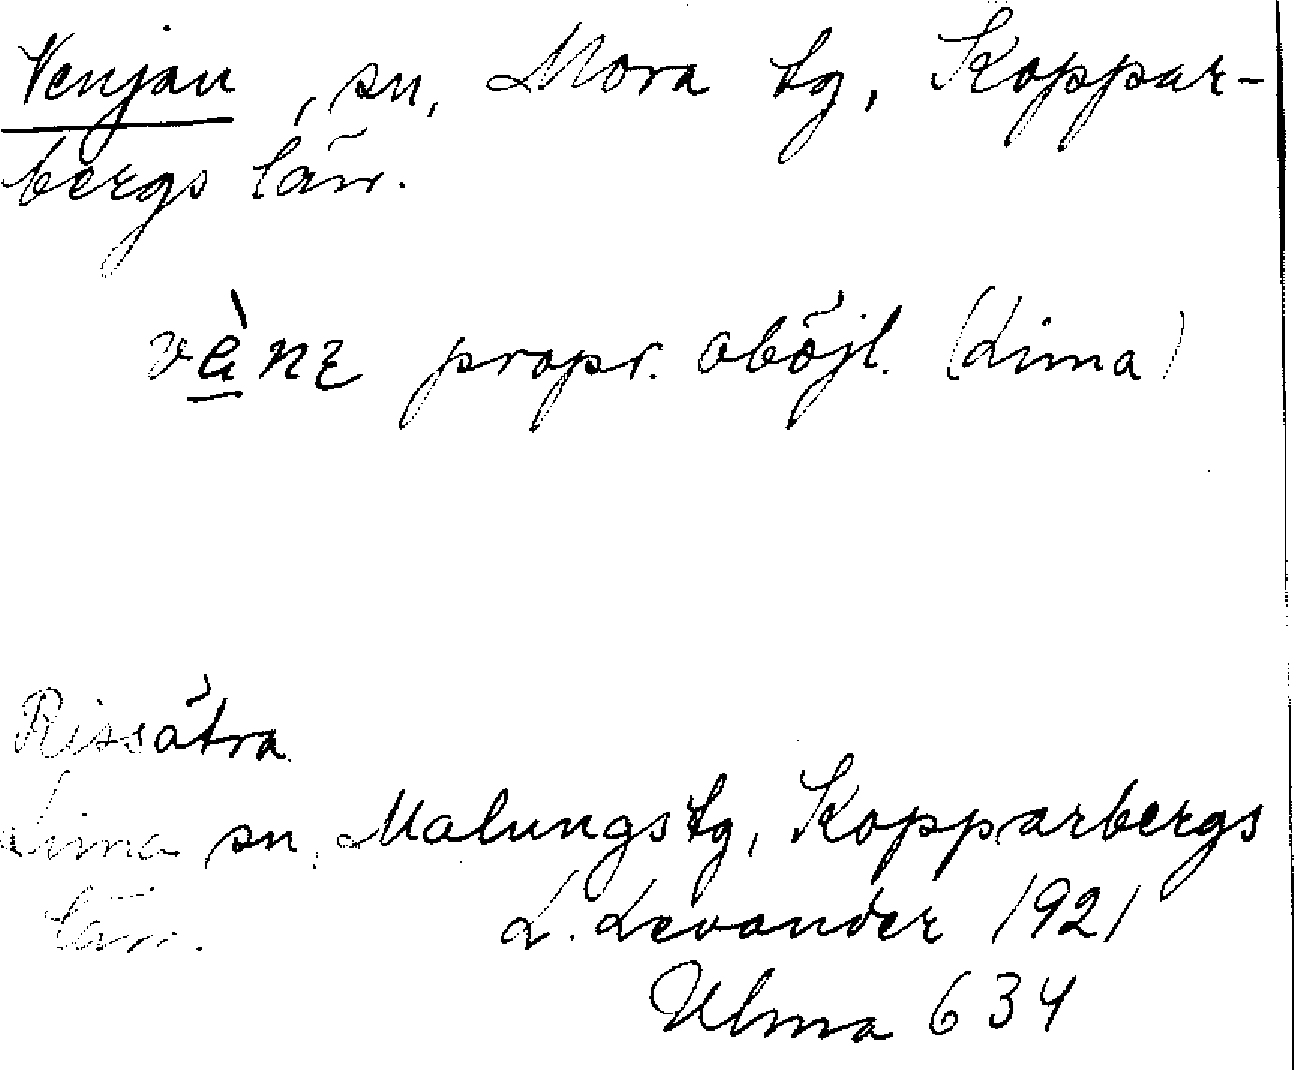 Venjan, sn, Mora tg, Koppar-
bergs län.
vὲnɛ propr. oböjl. (Lima)
Rissätra
Lima sn, Malungs tg, Kopparbergs
län.
L. Levander 1921
Ulma 634